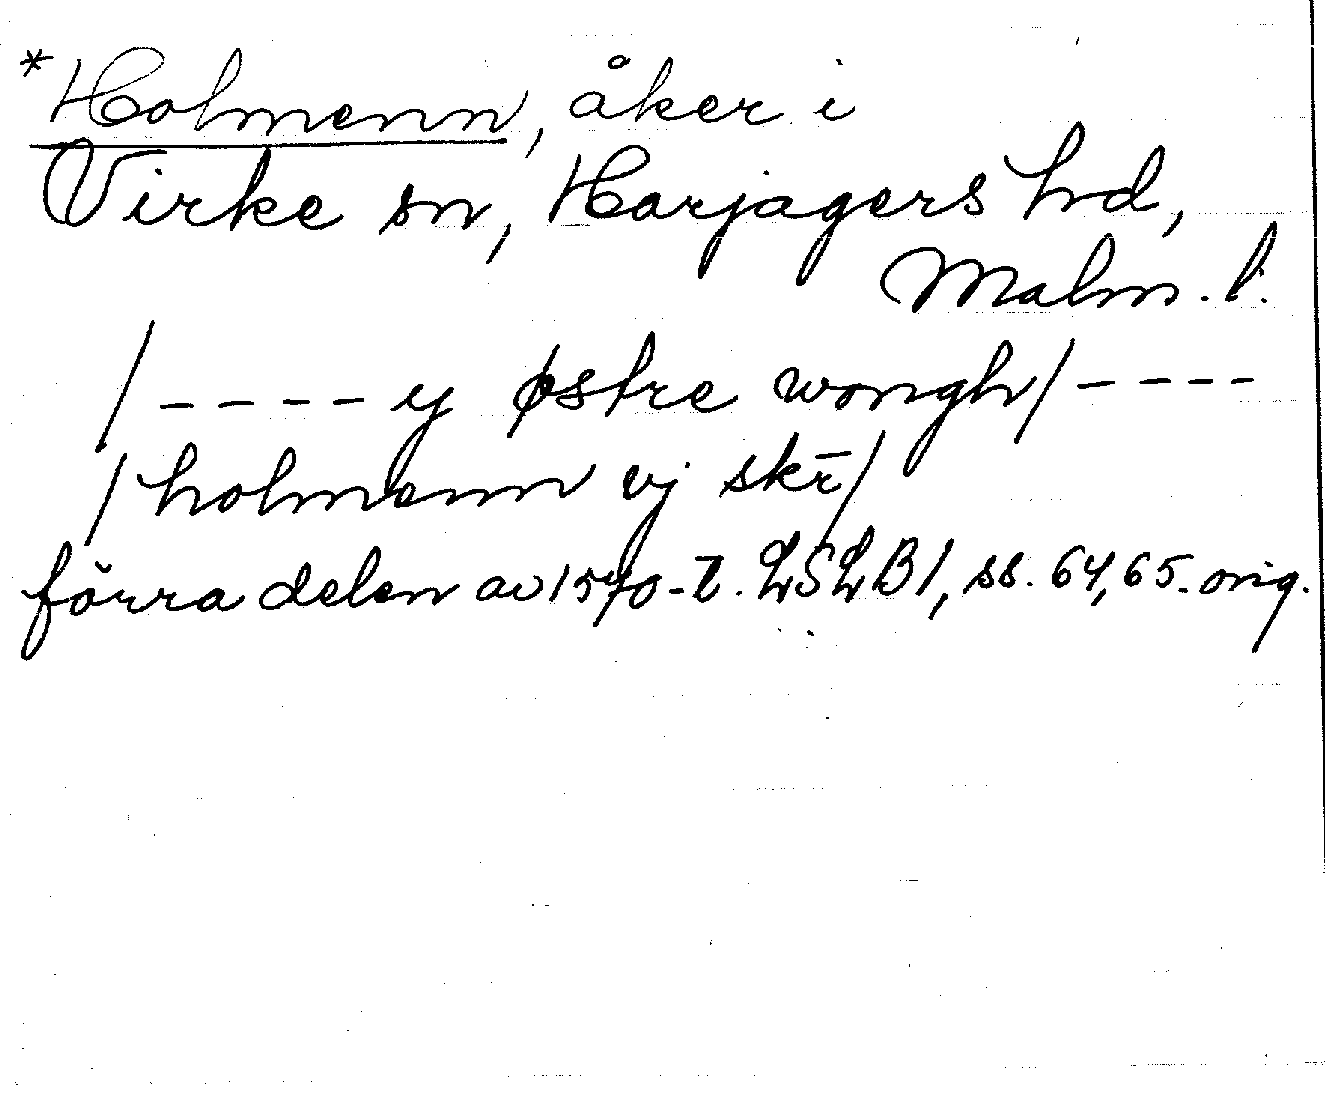 *Holmenn, åker i
Virke sn, Harjagers hd,
Malm. l.
/----y østre wongh/----
/holmenn vj skr̄/
förra delen av 1570-t. LSLB1, ss. 64, 65. orig.